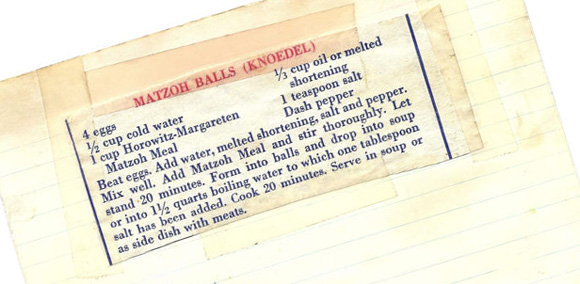 MATZOH BALLS (KNOEDEL)
4 eggs
½ cup cold water
1 cup Horowitz-Margareten
Matzoh Meal
⅓ cup oil or melted
shortening
1 teaspoon salt
Dash pepper
Beat eggs. Add water, melted shortening, salt and pepper.
Mix well. Add Matzoh Meal and stir thoroughly. Let
stand 20 minutes. Form into balls and drop into soup
or into 1½ quarts boiling water to which one tablespoon
salt has been added. Cook 20 minutes. Serve in soup or
as side dish with meats.